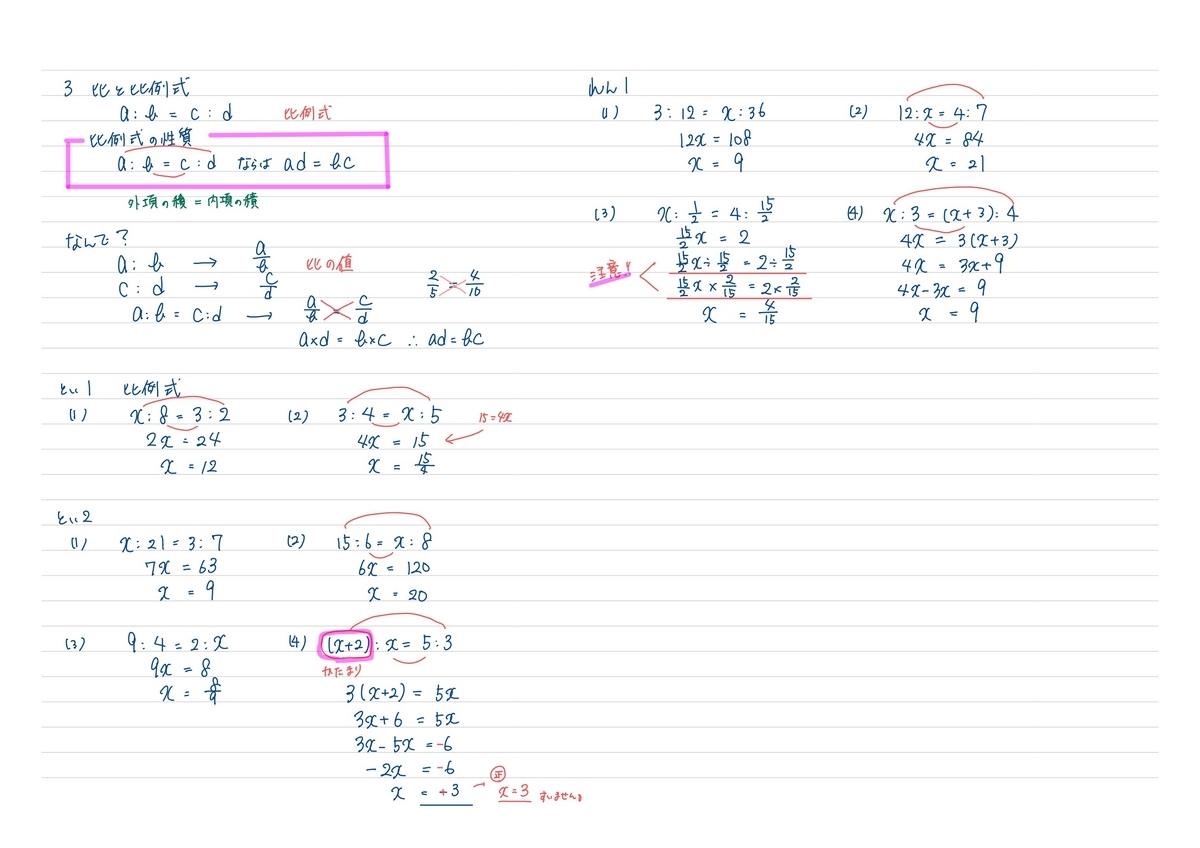 3 比と比例式
a:b = c:d 比例式
比例式の性質
a:b = c:d ならば ad = bc
外項の積 = 内項の積
なんで?
a:b → a/b 比の値
c:d → c/d
2/5 = 4/10
a:b = c:d → a/b = c/d
a×d = b×c ∴ ad = bc
とい1 比例式
(1) x:8 = 3:2
2x = 24
x = 12
(2) 3:4 = x:5
15=4x
4x = 15
x = 15/4
とい2
(1) x:21 = 3:7
7x = 63
x = 9
(2) 15:6 = x:8
6x = 120
x = 20
(3) 9:4 = 2:x
9x = 8
x = 8/9
(4) (x+2):x = 5:3
かたまり
3(x+2) = 5x
3x+6 = 5x
3x-5x = -6
-2x = -6
x = +3
正 x=3 すいません。
れん1
(1) 3:12 = x:36
12x = 108
x = 9
(2) 12:x = 4:7
4x = 84
x = 21
(3) x:1/2 = 4:15/2
15/2x = 2
注意!
15/2x÷15/2 = 2÷15/2
15/2x×2/15 = 2×2/15
x = 4/15
(4) x:3 = (x+3):4
4x = 3(x+3)
4x = 3x+9
4x-3x = 9
x = 9